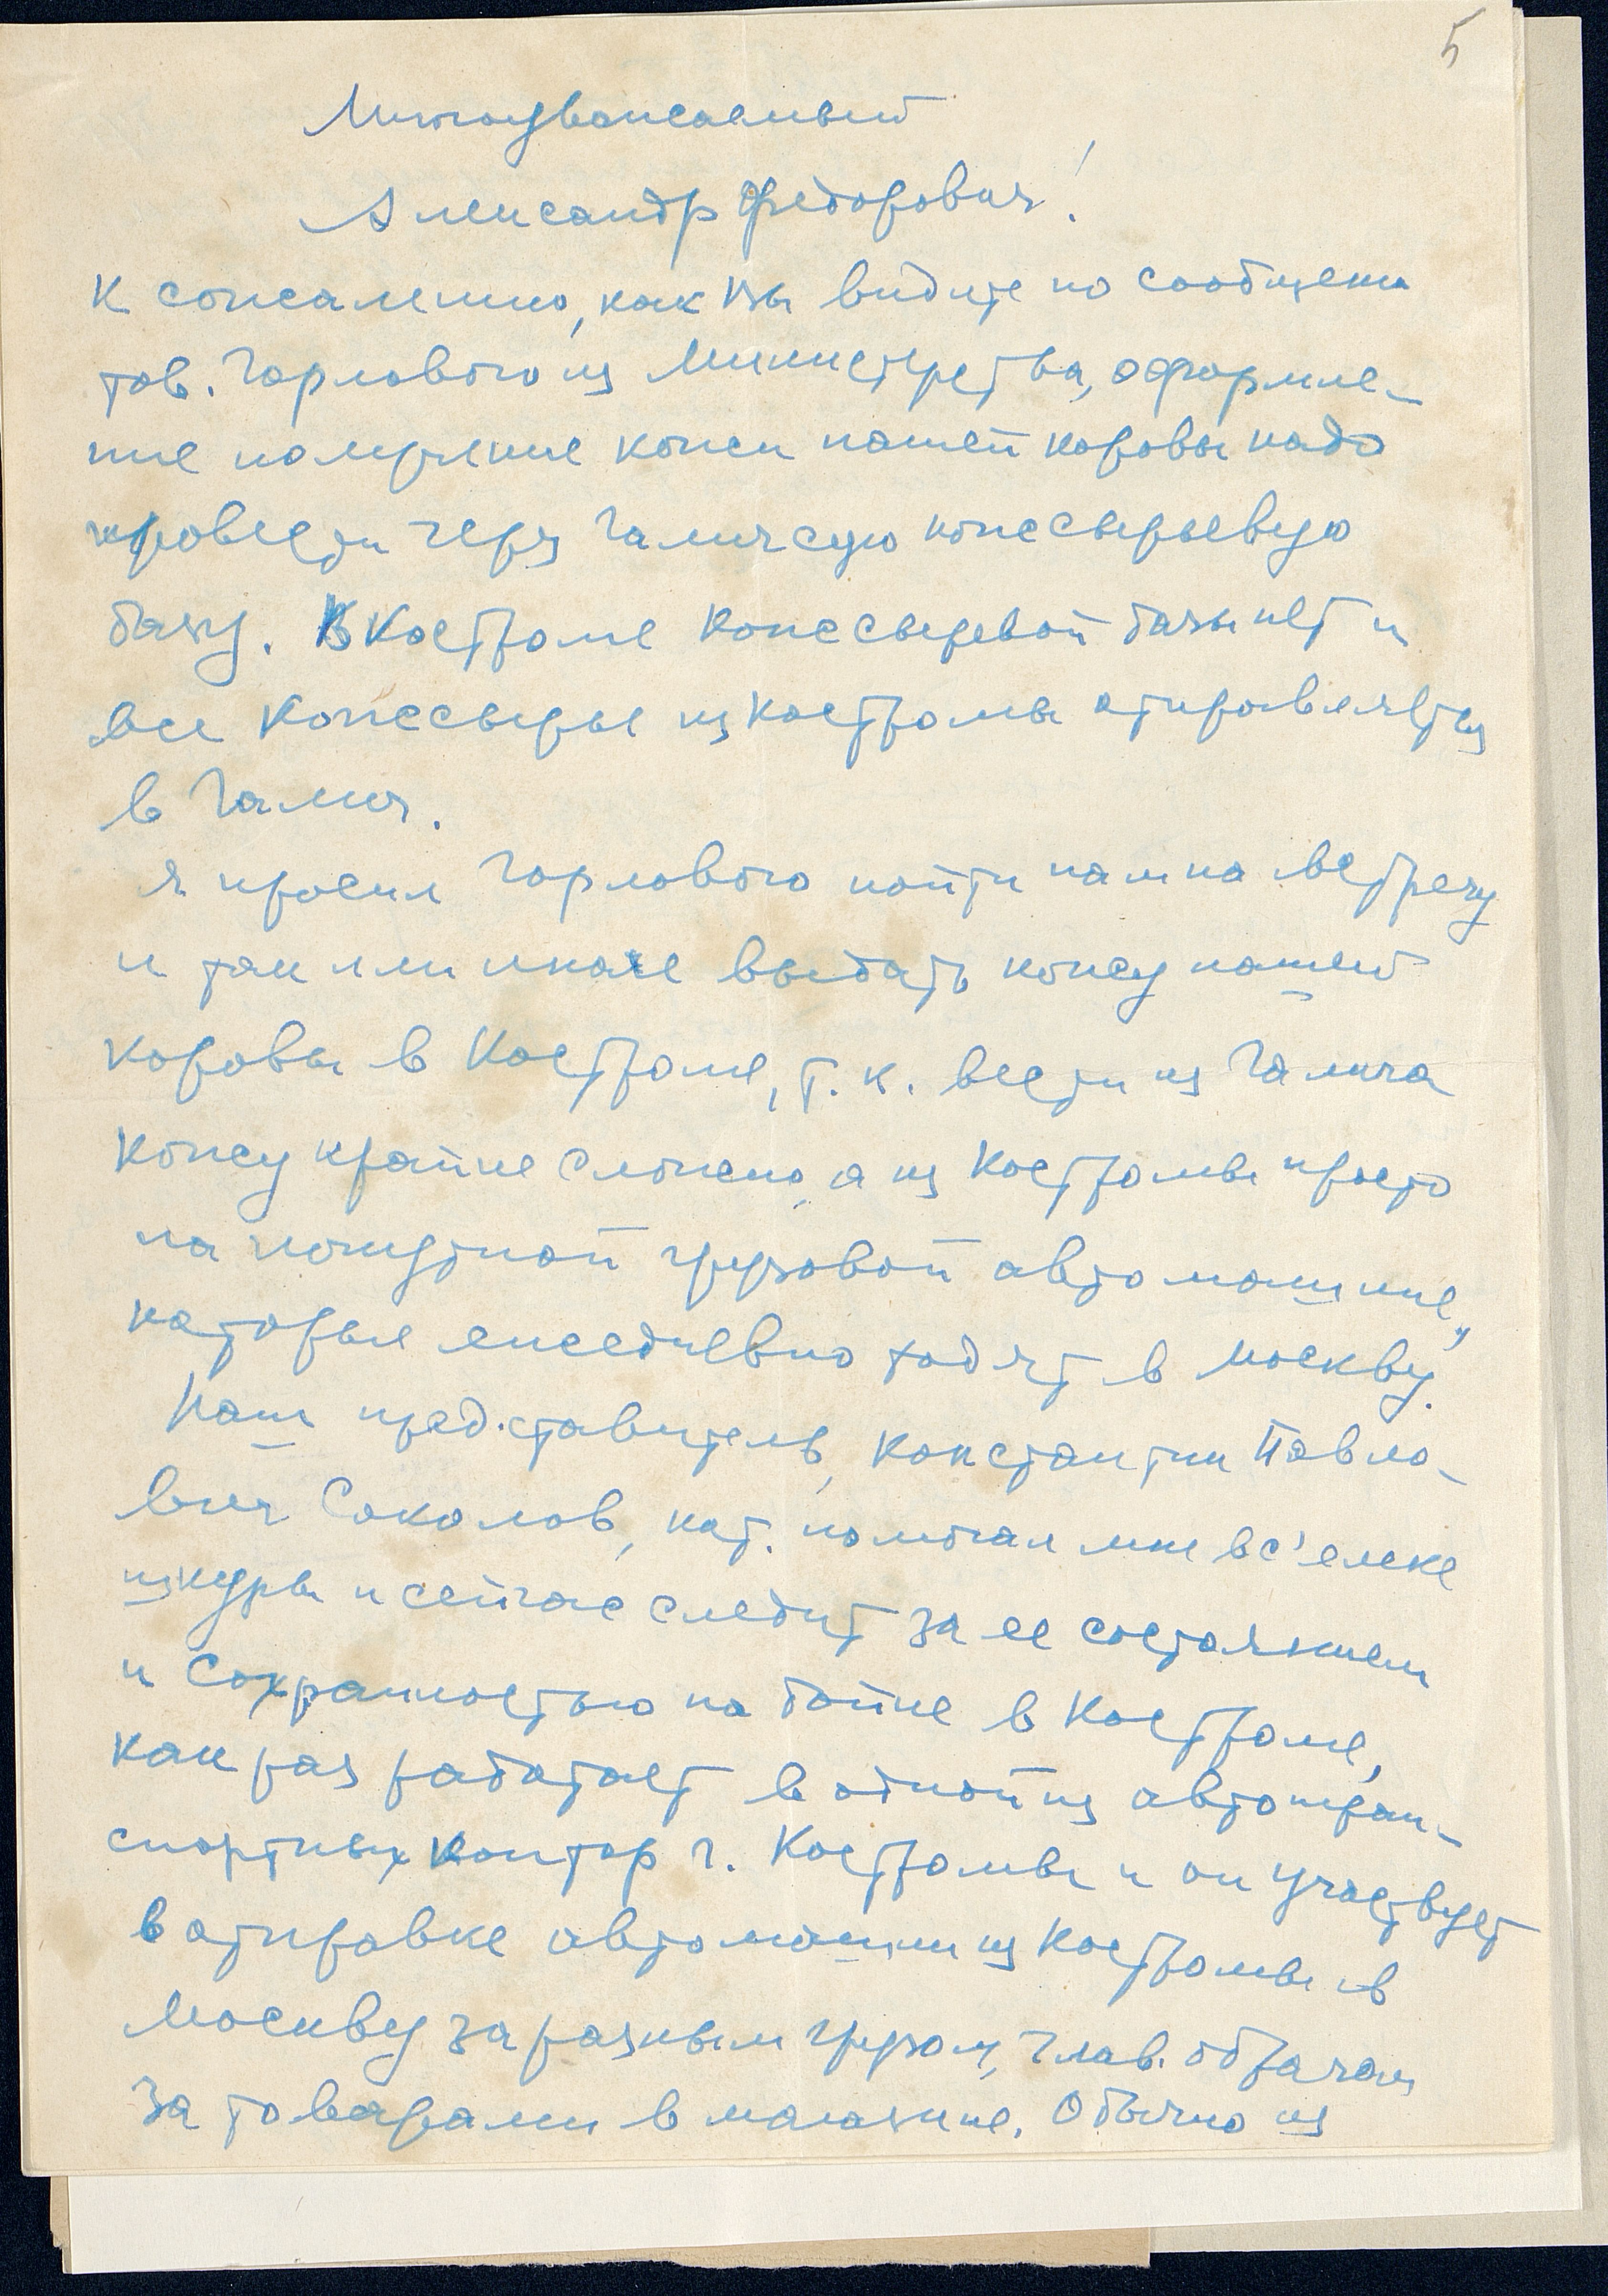 5
Многоуважаемый
Александр Федорович!
К сожалению, как Вы видите по сообщени
тов. Горлового из Министерства, оформле-
ние получение кожи нашей коровы надо
провести через Галичскую кожсырьевую
базу. В Костроме кожсырьевой базы нет и
все кожсырье из Костромы отправляется
в Галич.
Я просил Горлового пойти нам на встречу
и так или иначе выдать кожу нашей
коровы в Костроме, т.к. везти из Галича
кожу крайне сложно, а из Костромы просто
на попутной грузовой автомашине,
которые ежедневно ходят в Москву.
Наш представитель, Константин Павло-
вич Соколов, кот. помогал мне в с'емке
шкуры и сейчас следит за ее состоянием
и сохранностью на бойне в Костроме,
как раз работает в одной из автотран-
спортных контор г. Костромы и он участвует
в отправке автомашин из Костромы в
Москву за разным грузом, глав. образом
за товарами в магазине. Обычно из